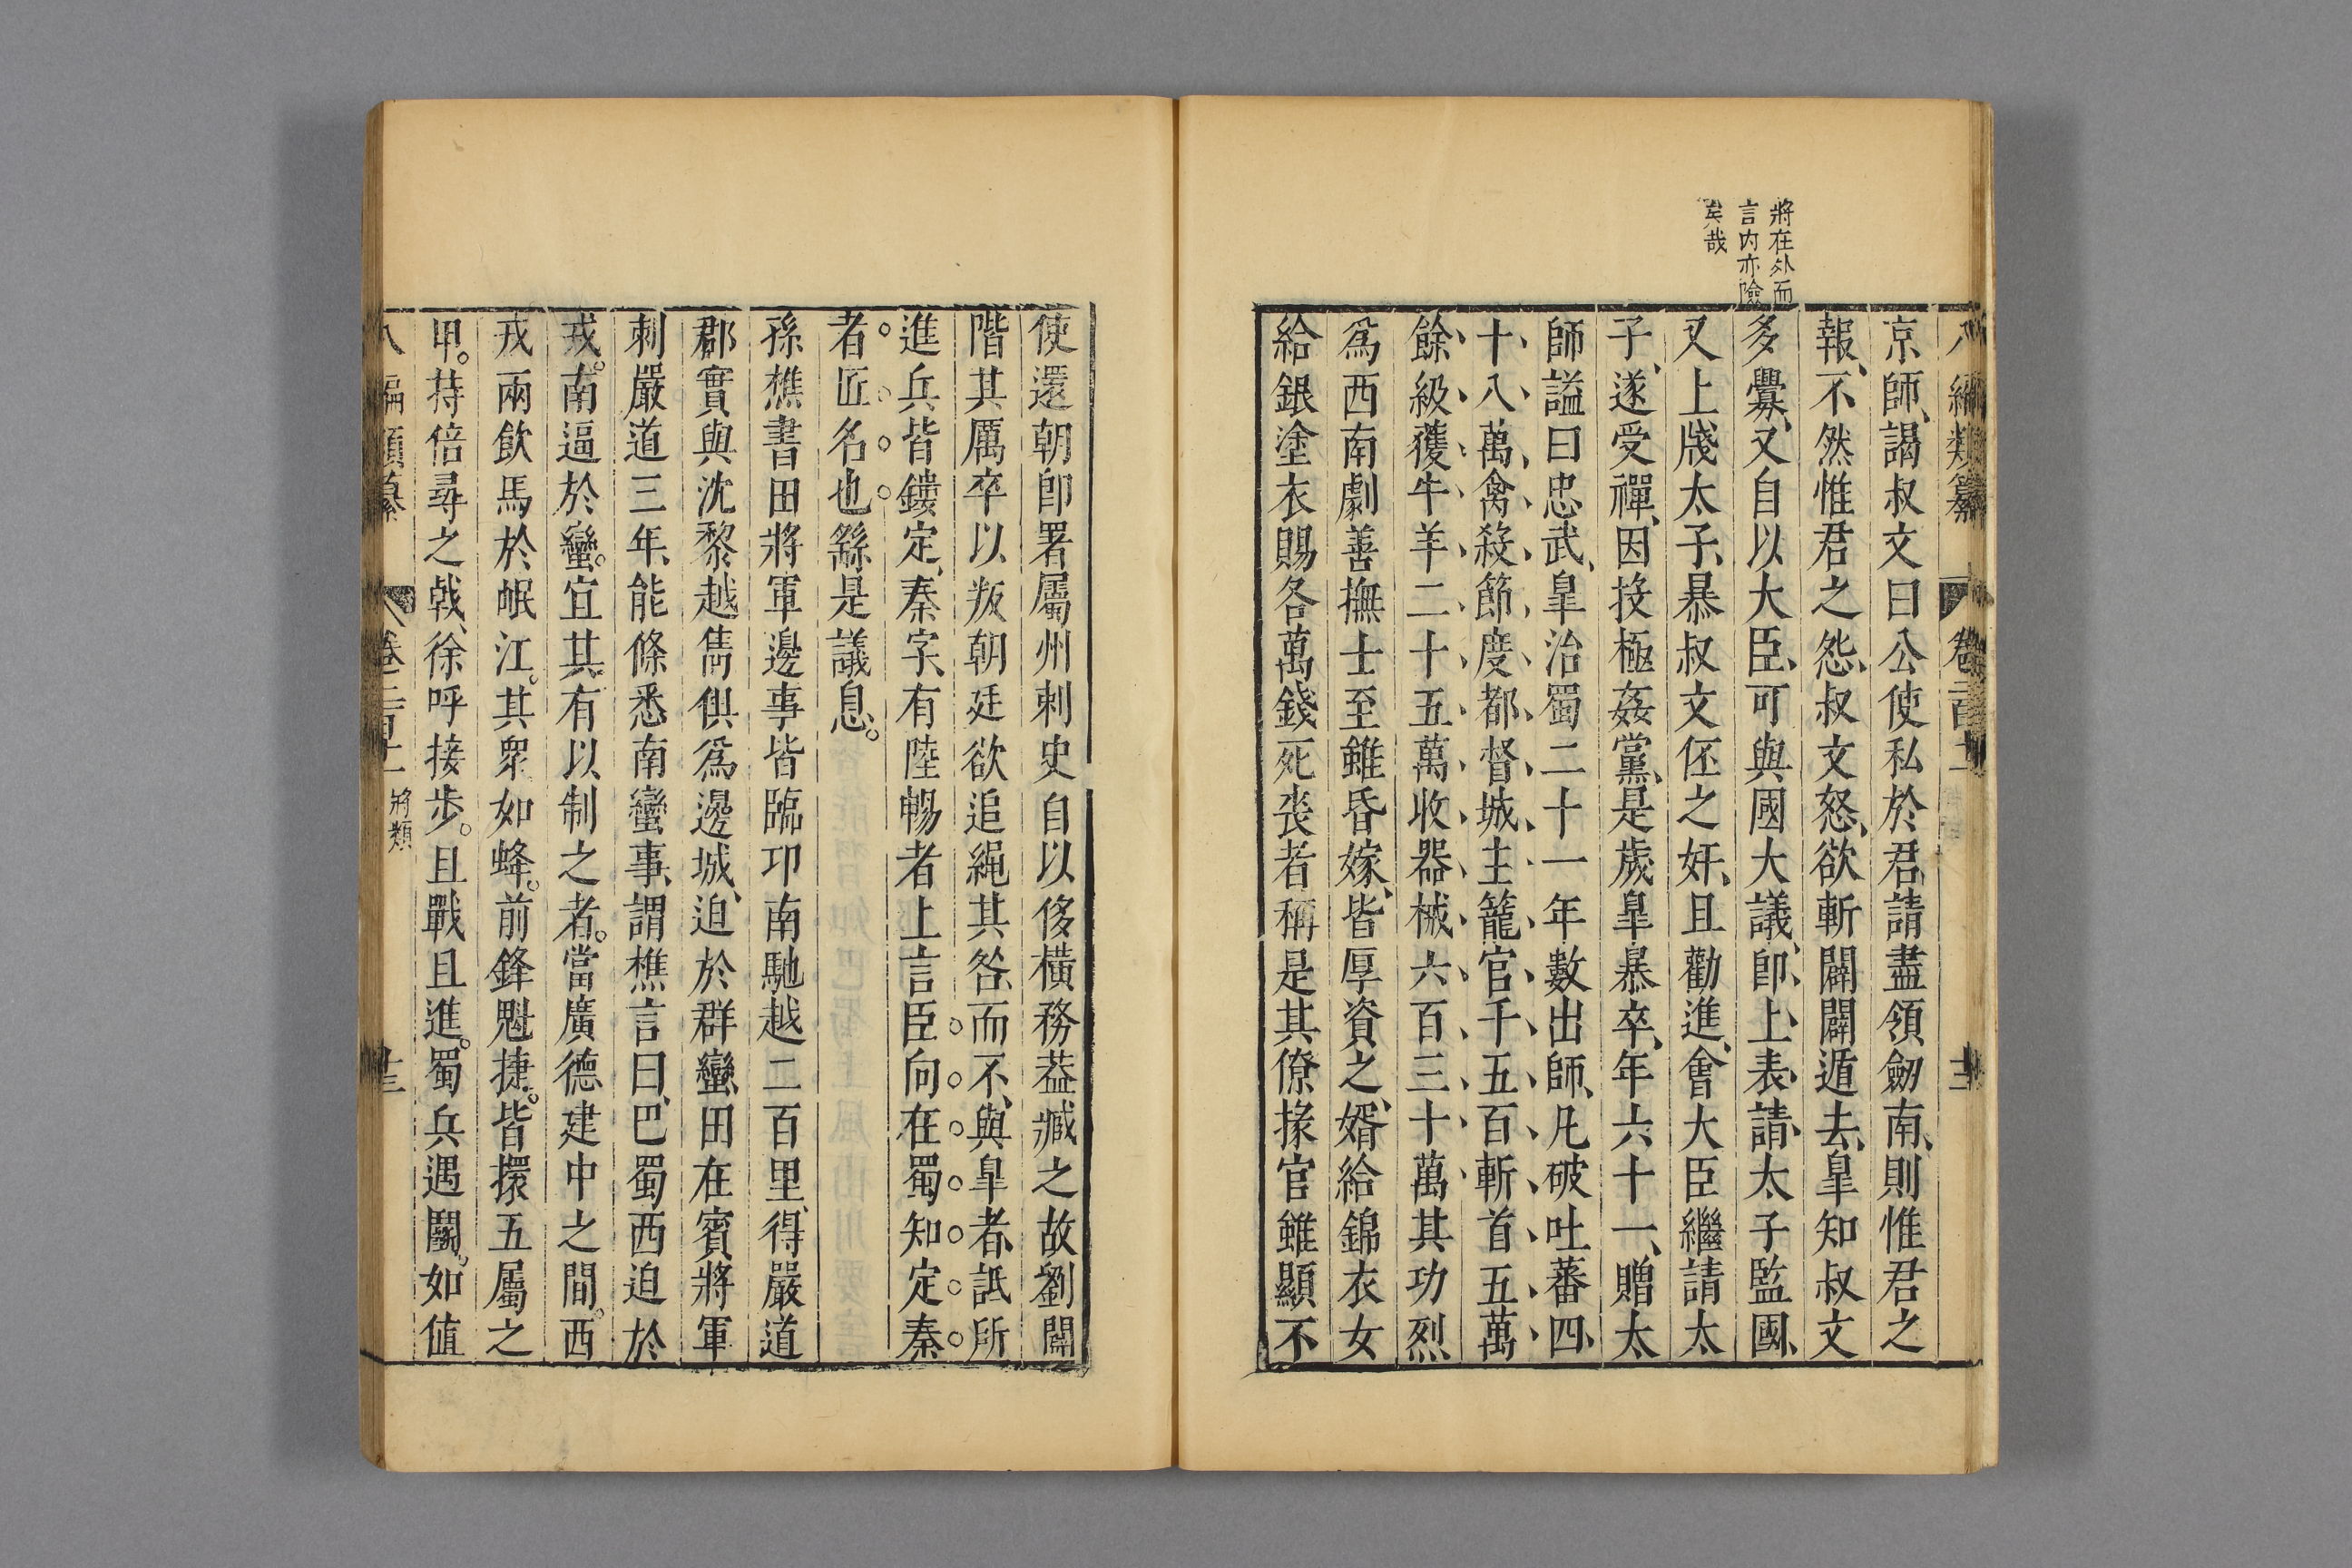 將在外而
言内亦險
矣哉
京師謁叔文曰公使私於君請盡領劒南則惟君之
報不然惟君之怨叔文怒欲斬闢闢遁去臯知叔文
多釁又自以大臣可與國大議卽上表請太子監國
又上牋太子暴叔文伾之奸且勸進會大臣繼請太
子遂受禪因投極姦黨是歲臯暴卒年六十一贈太
師謚曰忠武臯治蜀二十一年數出師凡破吐蕃四
十八萬禽殺節度都督城主籠官千五百斬首五萬
餘級獲牛羊二十五萬收器械六百三十萬其功烈
爲西南劇善撫士至雖昏嫁皆厚資之婿給錦衣女
給銀塗衣賜各萬錢死喪者稱是其僚掾官雖顯不
使還朝卽署屬州刺史自以侈橫務葢臧之故劉闢
階其厲卒以叛朝廷欲追繩其咎而不與臯者詆所
進兵皆鏤定秦字有陸暢者上言臣向在蜀知定秦
者匠名也繇是議息
孫樵書田將軍邊事皆臨卭南馳越二百里得嚴道
郡實與沈黎越雋俱爲邊城迫於群蠻田在賓將軍
刺嚴道三年能條悉南蠻事謂樵言曰巴蜀西迫於
戎南逼於蠻宜其有以制之者當廣德建中之間西
戎兩飲馬於岷江其衆如蜂前鋒魁捷皆擐五屬之
甲持倍尋之戟徐呼接步且戰且進蜀兵遇鬬如值
八編類纂
將類
十三